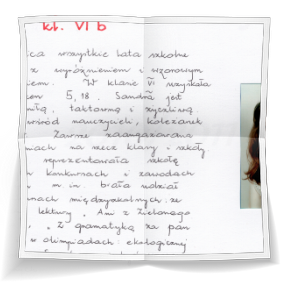 kl. VI b
ica wszystkie lata szkolne
z wyróżnieniem i wzorowym
iem. W klasie VI uzyskała
5,18. Sandra jest
miłą, taktowną i życzliwą
wśród nauczycieli, koleżanek
Zawsze zaangażowana
niach na rzecz klasy i szkoły
reprezentowała szkołę
konkursach i zawodach
m in. brała udział
międzyszkolnych: ze
lektury „Ani z Zielonego
„Z gramatyką za pan
w olimpiadach: ekologicznej